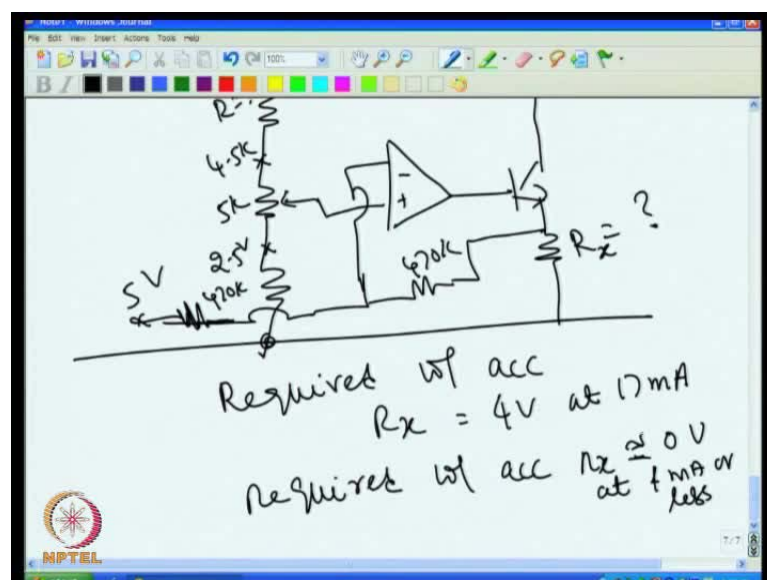 Note1 - Windows Journal
File Edit View Insert Actions Tools Help
100%
B I
R=
4.5K
5K
2.5V
5V
470K
470K
Rx = ?
Required w/ acc
Rx = 4V at 17mA
Required w/ acc Rx ≅ 0V
at 1mA or
less
NPTEL
7/7